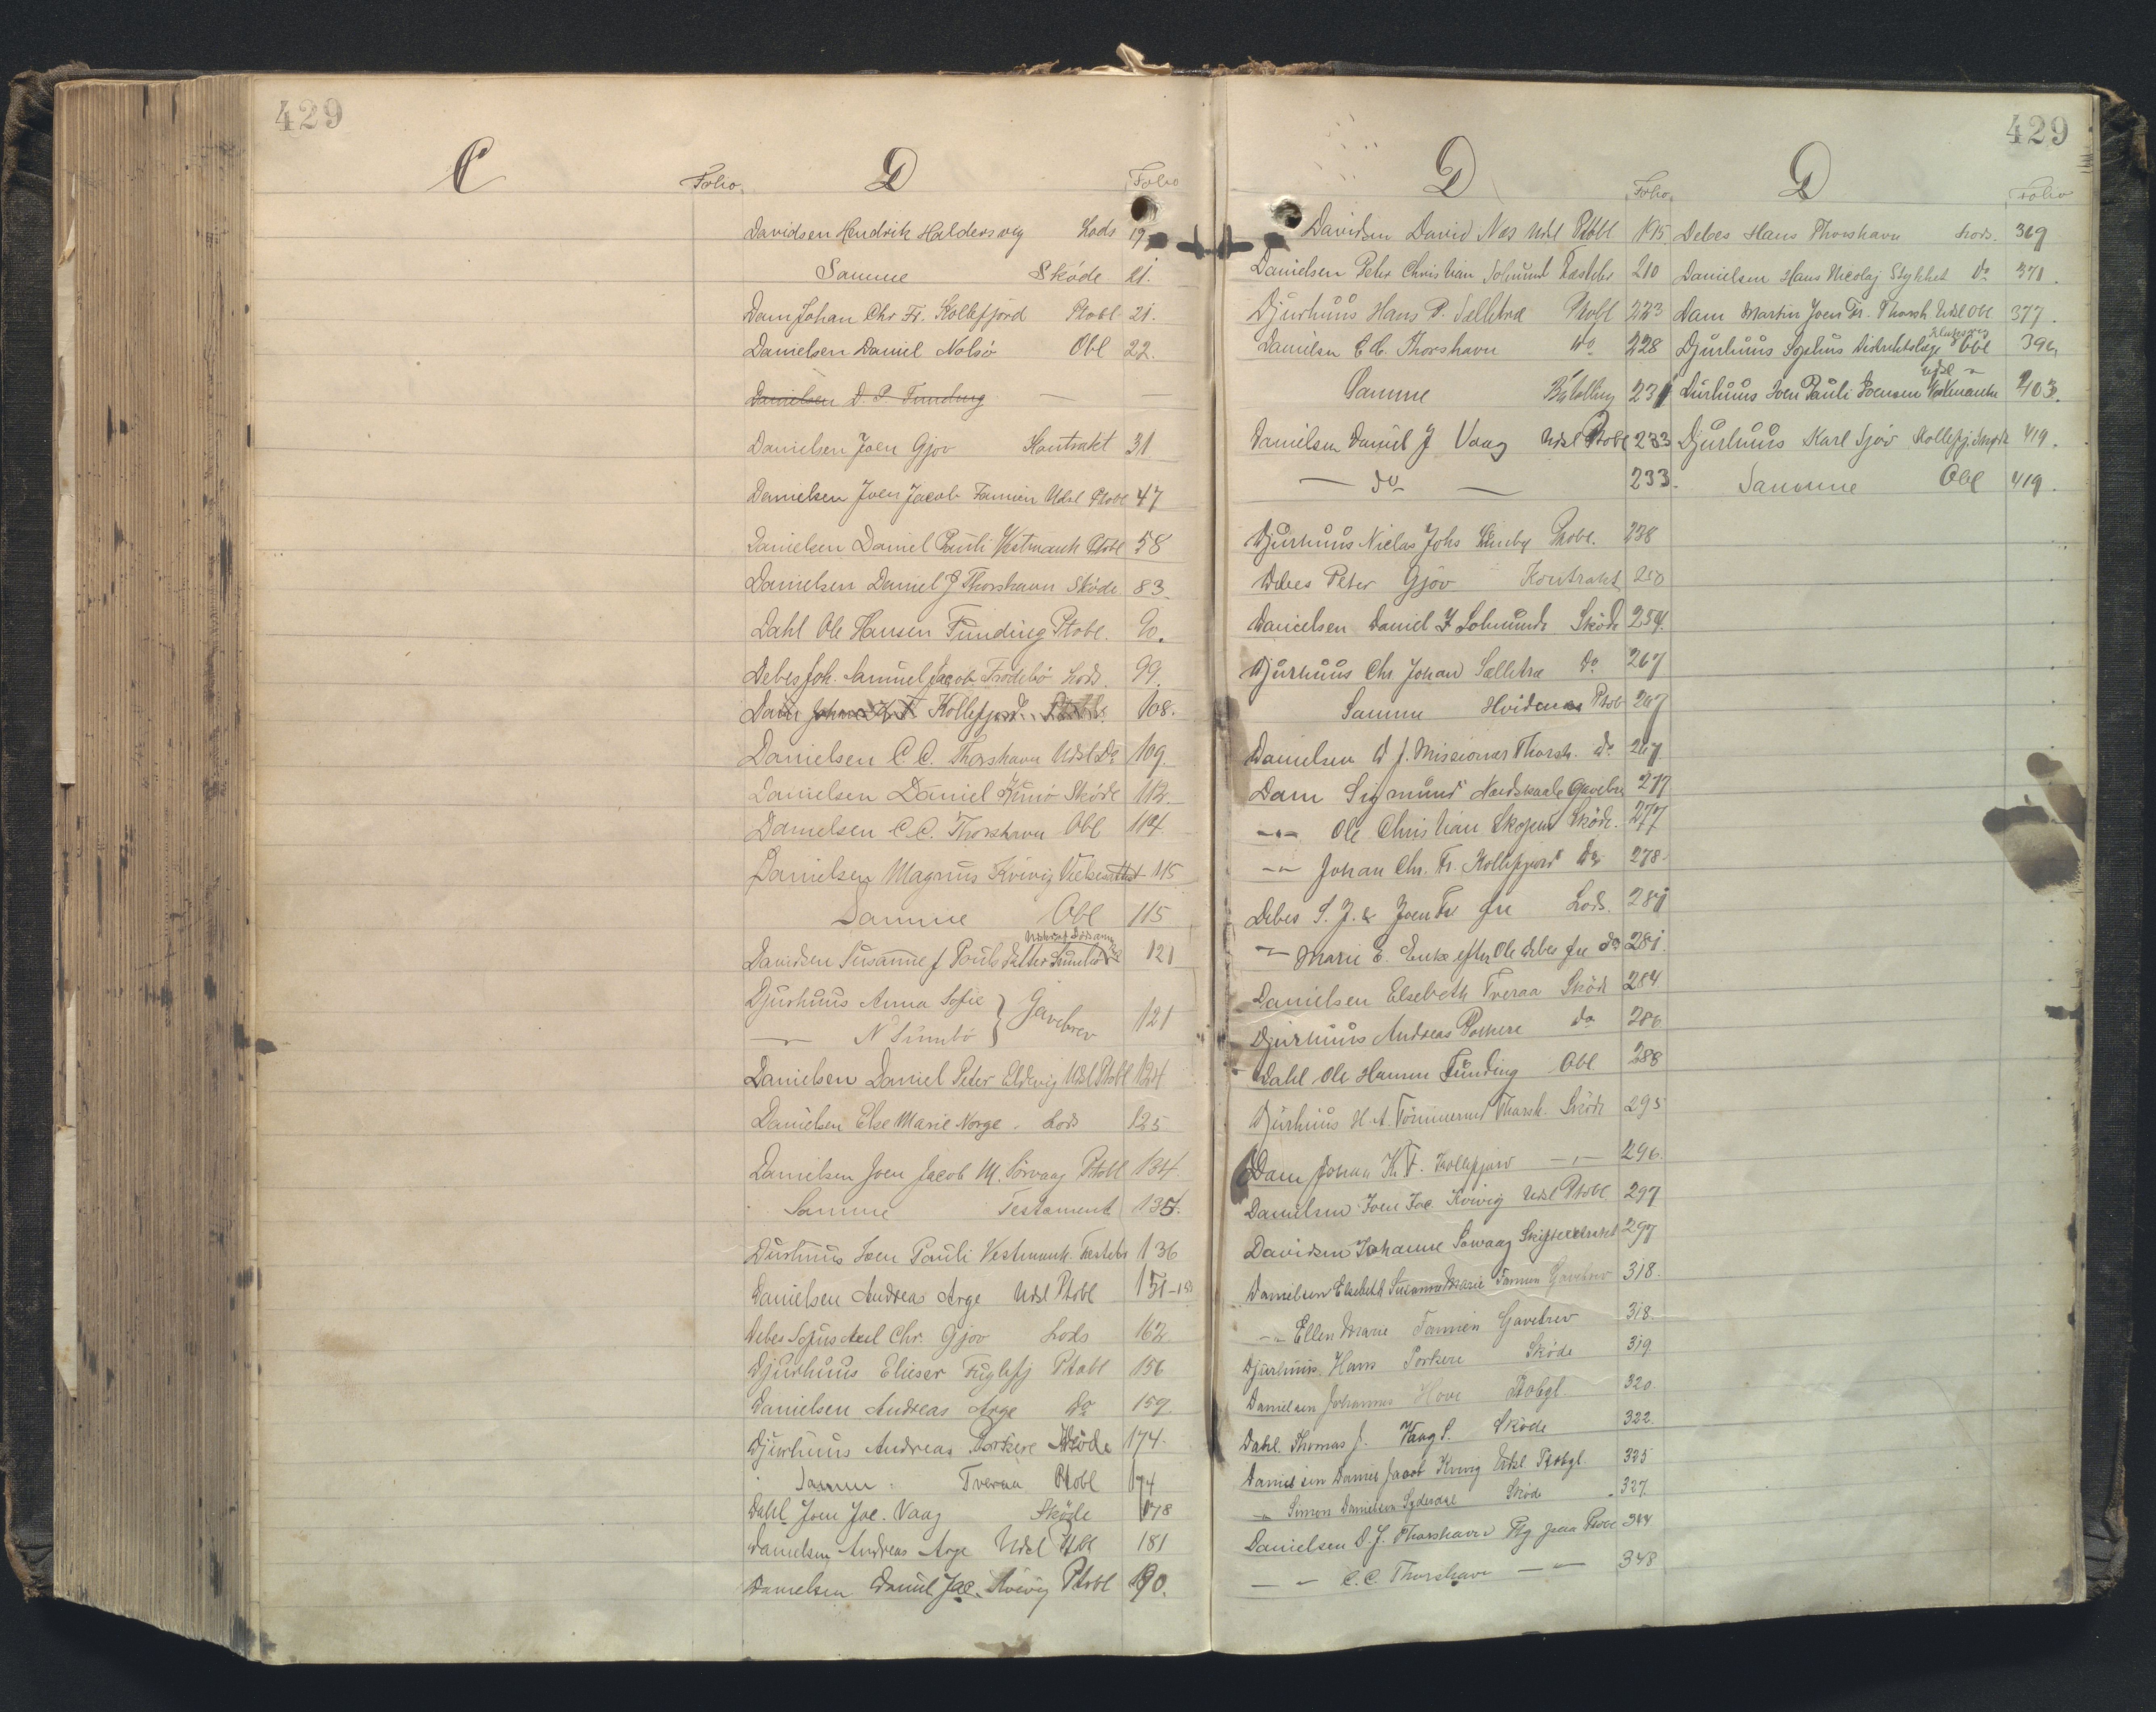 429
C
Folio
D
Folio
Davidsen Hendrik Haldersvig Lods 19
Samme Sköde 21.
Dam Johan Chr Fr. Kollefjord Ptobl 21.
Danielsen Daniel Nolsö Obl 22.
Danielsen D. P. Funding — —
Danielsen Joen Gjov Kontrakt 31
Danielsen Joen Jacob Famien Udsl Ptobl 47
Danielsen Daniel Pauli Vestmanh Ptobl 58
Danielsen Daniel J Thorshavn Sköde 83
Dahl Ole Hansen Funding Ptobl. 90.
Debes Joh. Samuel Jacob Frodebö Lods. 99.
Dam Johan Kollefjord 108.
Danielsen C. C. Thorshavn Udsl Do 109.
Danielsen Daniel Kunö Sköde 112.
Danielsen C. C. Thorshavn Obl 114.
Danielsen Magnus Kvivig 115
Samme Obl 115
Davidsen Susanne f Pouls Datter Sumbö 121
Djurhuus Anna Sofie } Gavebrev
— N Sumbö 121
Danielsen Daniel Peter Eldevig Udsl Ptobl 124
Danielsen Else Marie Norge. Lods 125
Danielsen Joen Jacob M. Sörvaag Ptobl 134.
Samme Testament 135.
Durhuus Joen Pauli Vestmanh. Fæstebr 136
Danielsen Andreas Arge Udsl Ptobl 151-
Debes Sofus Axel Chr. Gjov Lods 162
Djurhuus Elieser Fuglefj Ptobl 156
Danielsen Andreas Arge Do 159.
Djurhuus Andreas Porkere Sköde 174.
Samme. Tveraa Ptobl 174
Dahl Joen Jac. Vaag Sköde 178
Danielsen Andreas Arge Udsl Ptobl 181
Danielsen Daniel Jac. Kvivig Ptobl 190.
429
D
Folio
D
Folio
Davidsen David Næs Udsl Ptobl 195
Danielsen Peter Christian Solmund Fæstebr 210
Djurhuus Hans P. Selletræ Ptobl 223
Danielsen C C. Thorshavn do 228
Samme 231
Danielsen Daniel J Vaag Udsl Ptobl 233
— do — 233.
Djurhuus Niclas Johs Sumbö Ptobl. 238
Debes Peter Gjöv Kontrakt 250
Danielsen Daniel J Solmunde Sköde 254.
Djurhuus Chr. Johan Selletræ Do 267
Samme Hvidenæs Ptobl 267
Danielsen D J. Missionær Thorsh. do 267
Dam Sigmund Nordskaale Gavebrev 277
-"- Ole Christian Skopen Sköde. 277
-"- Johan Chr. Fr. Kollefjord Do 278
Debes S. J. & Joen Fr Lods. 281
-"- Marie E. Enke efter Ole Debes do 281.
Danielsen Elsebeth Tveraa Sköde 284
Djurhuus Andreas Porkere do 286
Dahl Ole Hansen Funding Obl 288
Djurhuus H. A. Tömmermd Thorsh. Sköde 295
Dam Johan K F. Kollefjord -"- 296.
Danielsen Joen Jac Kvivig Udsl Ptobl 297
Davidsen Johanne Sörvaag Skifteextract 297
Danielsen Elsebeth Susanne Marie Famien Gavebrev 318.
-"- Ellen Marie Famien Gavebrev 318.
Djurhuus. Hans Porkere Sköde 319
Danielsen Johannes Hove Ptobgl 320.
Dahl. Thomas J. Vaag S. Sköde 322.
Danielsen Daniel Jacob Kvivig Udsl Ptobgl. 325
-"- Simon Danielsen Syderdal Sköde 327.
Danielsen D. J. Thorshavn Ptobl 344
— " C. C. Thorshavn — " 348
Debes Hans Thorshavn Lods. 369
Danielsen Hans Nicolaj Stykket Do 371.
Dam Martin Joen Fr. Thorsh Udsl Obl 377.
Djurhuus Sophus Distriktslæge Klaksvig Obl 396.
Durhuus Joen Pauli Joensen Vestmanhn Udsl " 403.
Djurhuus Karl Sjöv Kollefj. Sköde 419.
Samme Obl 419.